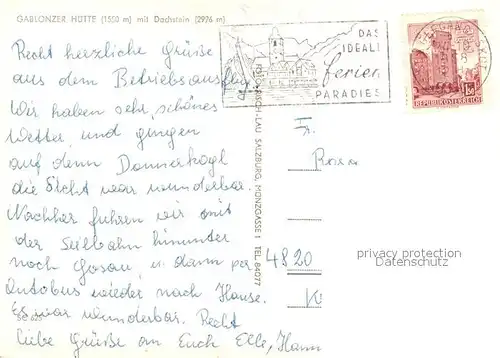 GABLONZER HÜTTE (1550 m) mit Dachstein (2996 m)
Recht herzliche Grüße
aus dem Betriebsausflug
Wir haben sehr schönes
Wetter und gingen
auf dem Donnerkogl
die Sicht war wunderbar.
Nachher fuhren wir mit
der Seilbahn hinunter
nach Gosau, u. dann per
Autobus wieder nach Hause.
Es war wunderbar. Recht
liebe Grüße an Euch Elle, Hann
SC 625
LAU SALZBURG, MÜNZGASSE 1 TEL. 84077
DAS
IDEALE
Ferien
PARADIES
REPUBLIK ÖSTERREICH
1.50
Fr.
Rosa
4820
privacy protection
Datenschutz